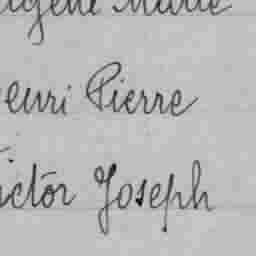 Eugène Marie
Henri Pierre
Victor Joseph